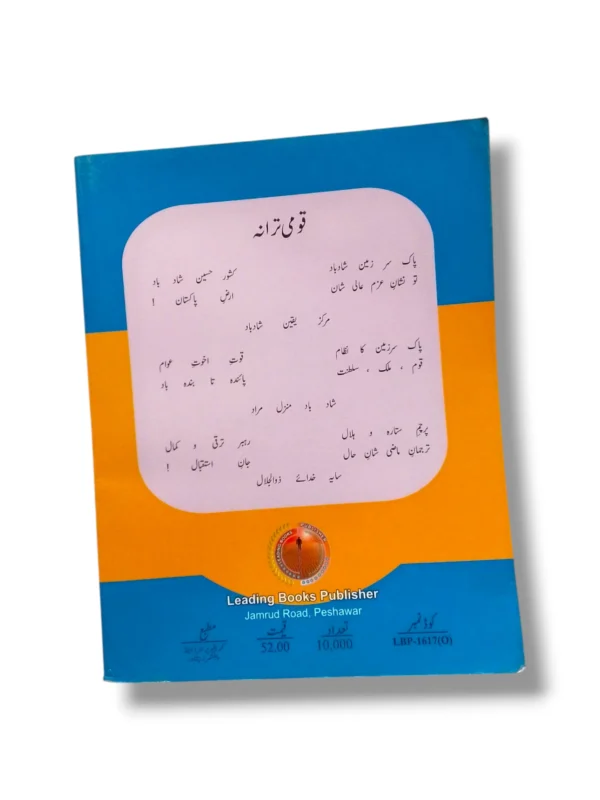 قومی ترانہ
پاک سر زمین شادباد کشور حسین شاد باد
تو نشانِ عزم عالی شان ارضِ پاکستان !
مرکز یقین شادباد
پاک سرزمین کا نظام قوتِ اخوتِ عوام
قوم ، ملک ، سلطنت پائندہ تا بندہ باد
شاد باد منزل مراد
پرچمِ ستارہ و ہلال رہبرِ ترقی و کمال
ترجمانِ ماضی شانِ حال جانِ استقبال !
سایہ خدائے ذوالجلال
Leading Books Publisher
Jamrud Road, Peshawar
کوڈ نمبر تعداد قیمت مطبع
LBP-1617(O) 10,000 52.00